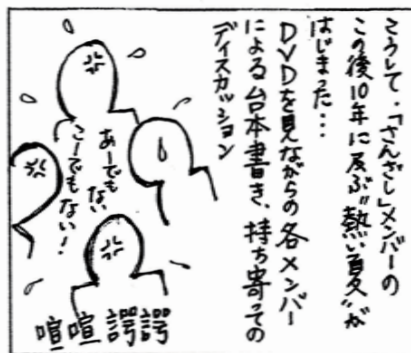 こうして、「さんざし」メンバーの
この後10年に及ぶ"熱い夏"が
はじまった…
DVDを見ながらの各メンバー
による台本書き、持ち寄っての
ディスカッション
あーでもない
こーでもない!
喧喧諤諤